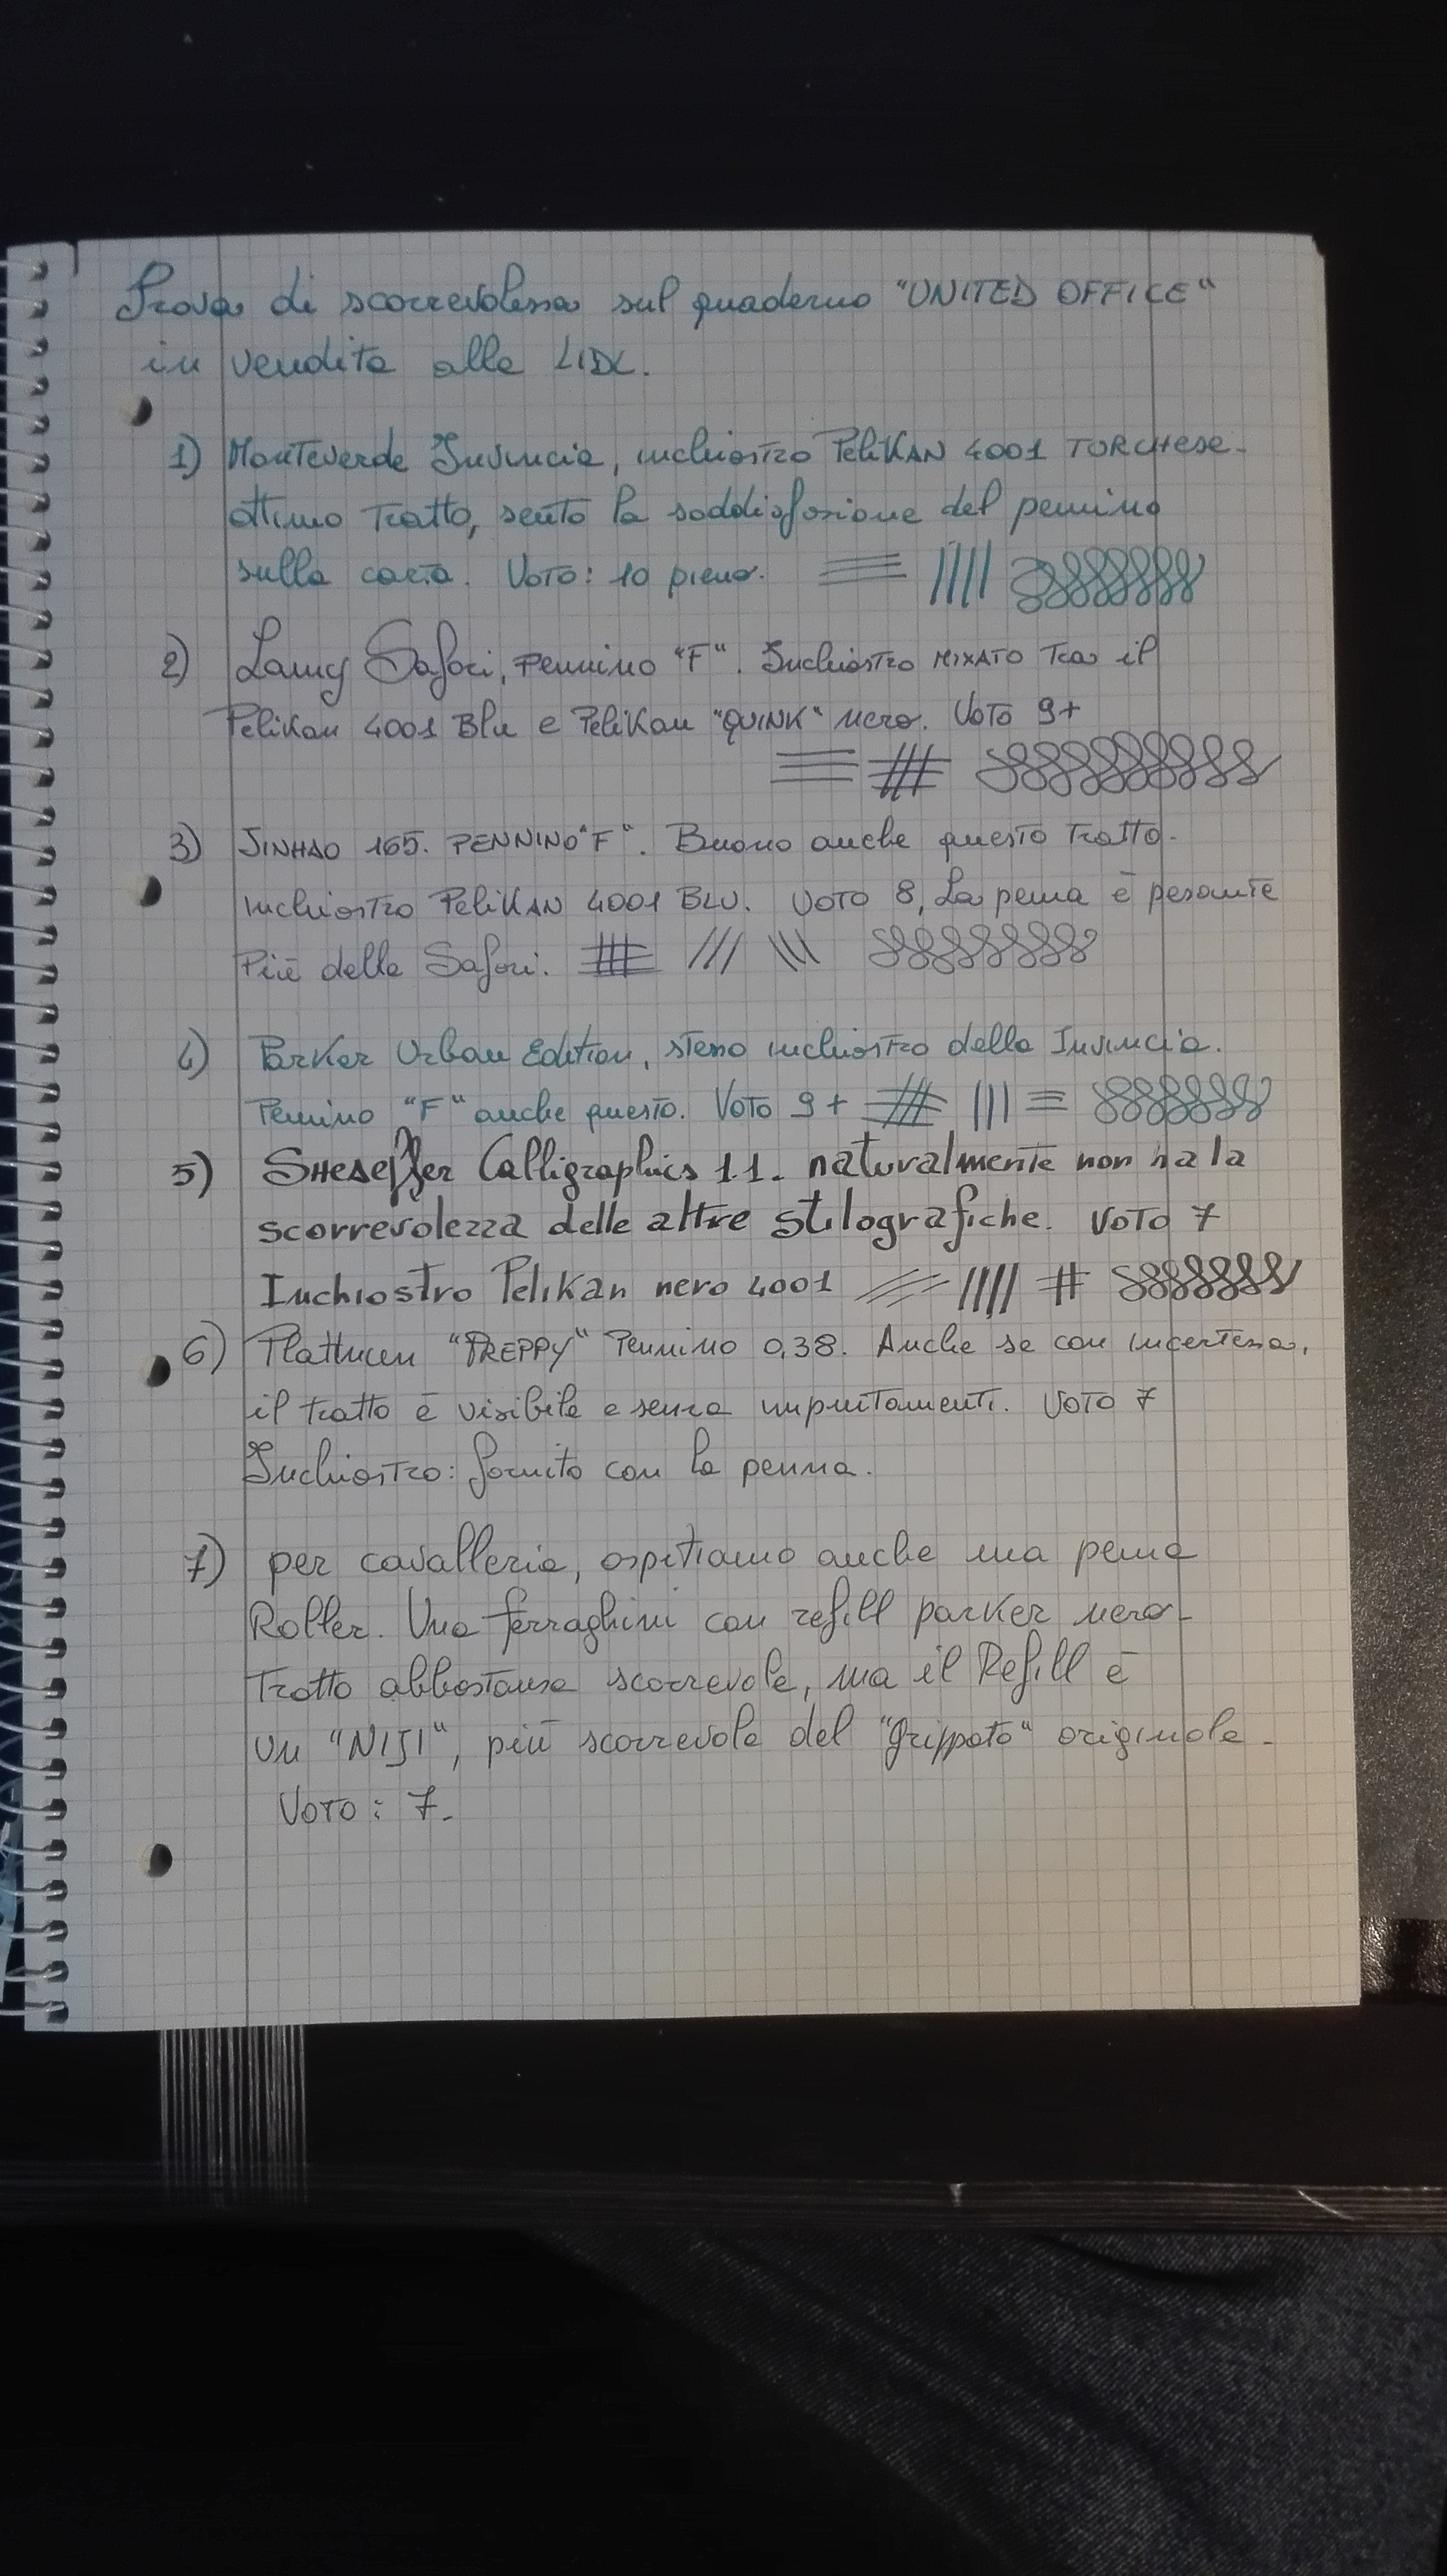 Prova di scorrevolezza sul quaderno "UNITED OFFICE"
in vendita alla LIDL.
1) Monteverde Invincia, inchiostro PeliKAN 4001 TURCHese-
ottimo tratto, sento la soddisfazione del pennino
sulla carta. Voto: 10 pieno.
2) Lamy Safari, pennino "F". Inchiostro MIXATO tra il
Pelikan 4001 Blu e Pelikan "QUINK" nero. Voto 9+
3) JINHAO 165. PENNINO "F". Buono anche questo tratto.
inchiostro PeliKAN 4001 BLU. VOTO 8, La penna è pesante
più della Safari.
4) Parker Urban Edition, stesso inchiostro della Invincia.
Pennino "F" anche questo. Voto 9+
5) Sheaeffer Calligraphics 1.1. naturalmente non ha la
scorrevolezza delle altre stilografiche. Voto 7
Inchiostro Pelikan nero 4001
6) Plattinum "PREPPY" Pennino 0,38. Anche se con incertezza,
il tratto è visibile e senza impuntamenti. Voto 7
Inchiostro: fornito con la penna.
7) per cavalleria, ospitiamo anche una penna
Roller. Una ferraghini con refill parker nero-
Tratto abbastanza scorrevole, ma il Refill è
un "NIJI", più scorrevole del "grippato" originale.
Voto: 7.